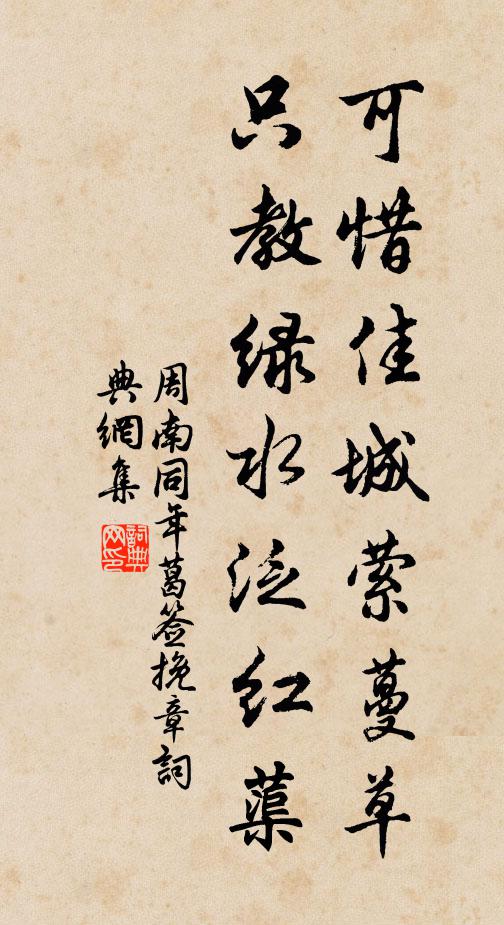 可惜佳城萦蔓草
只教绿水泛红蕖
周南同年葛签挽章詞
典網集
詞典網印